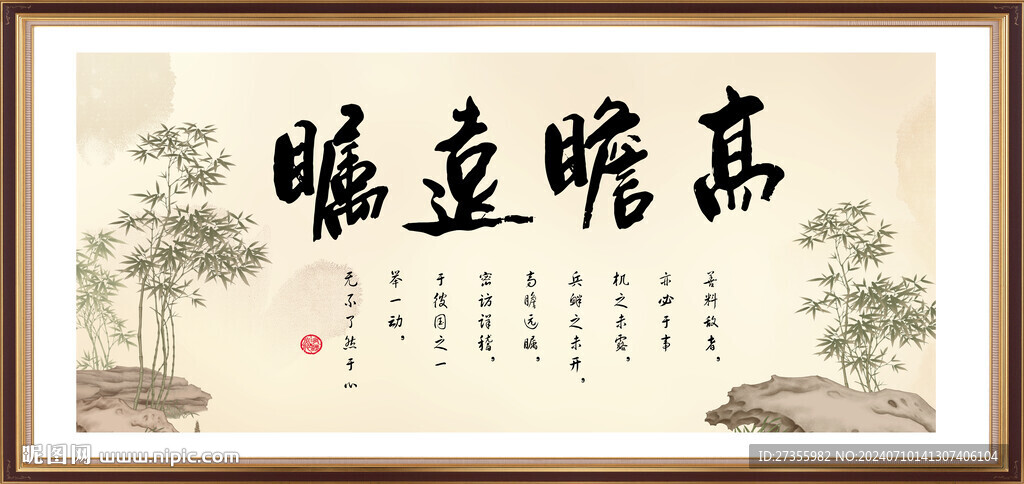 高瞻遠矚
善料敌者，
亦必于事
机之未露，
兵鲜之未开，
高瞻远瞩，
密访详稽，
于彼国之一
举一动，
无不了然于心
昵图网 www.nipic.com
ID:27355982 NO:20240710141307406104